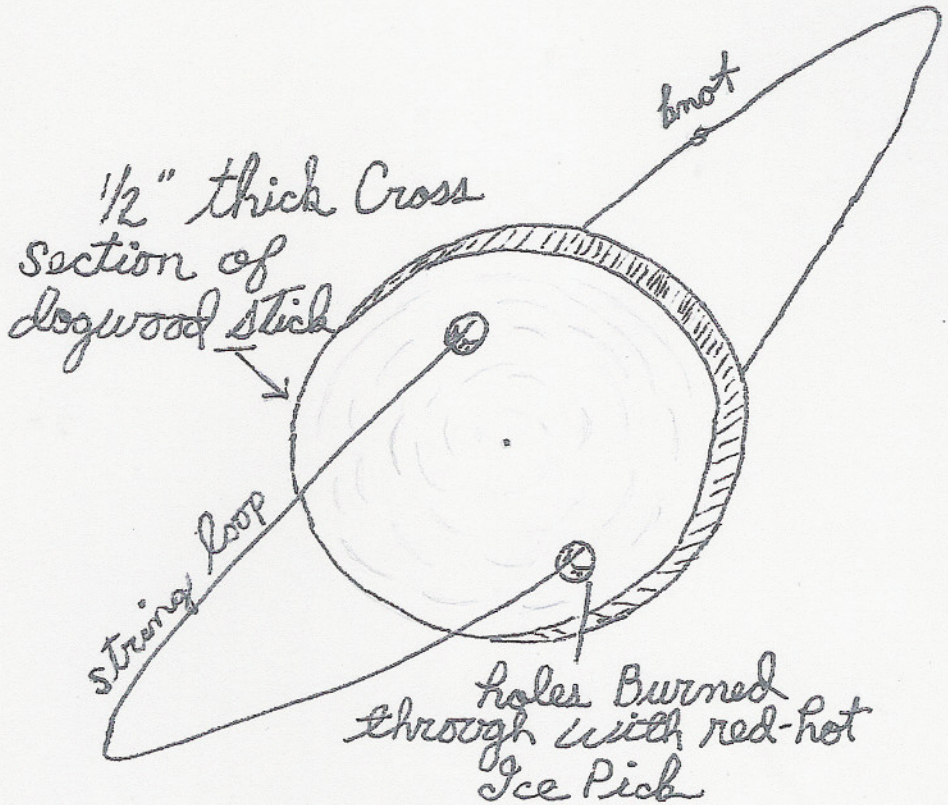 knot
1/2" thick Cross
section of
dogwood stick
string loop
holes Burned
through with red-hot
Ice Pick